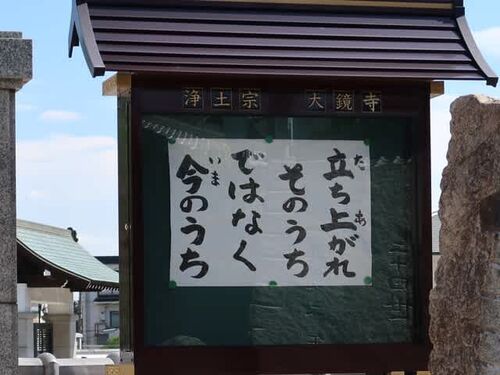 浄土宗 大鏡寺
立ち上がれ
た あ
そのうち
ではなく
今のうち
いま